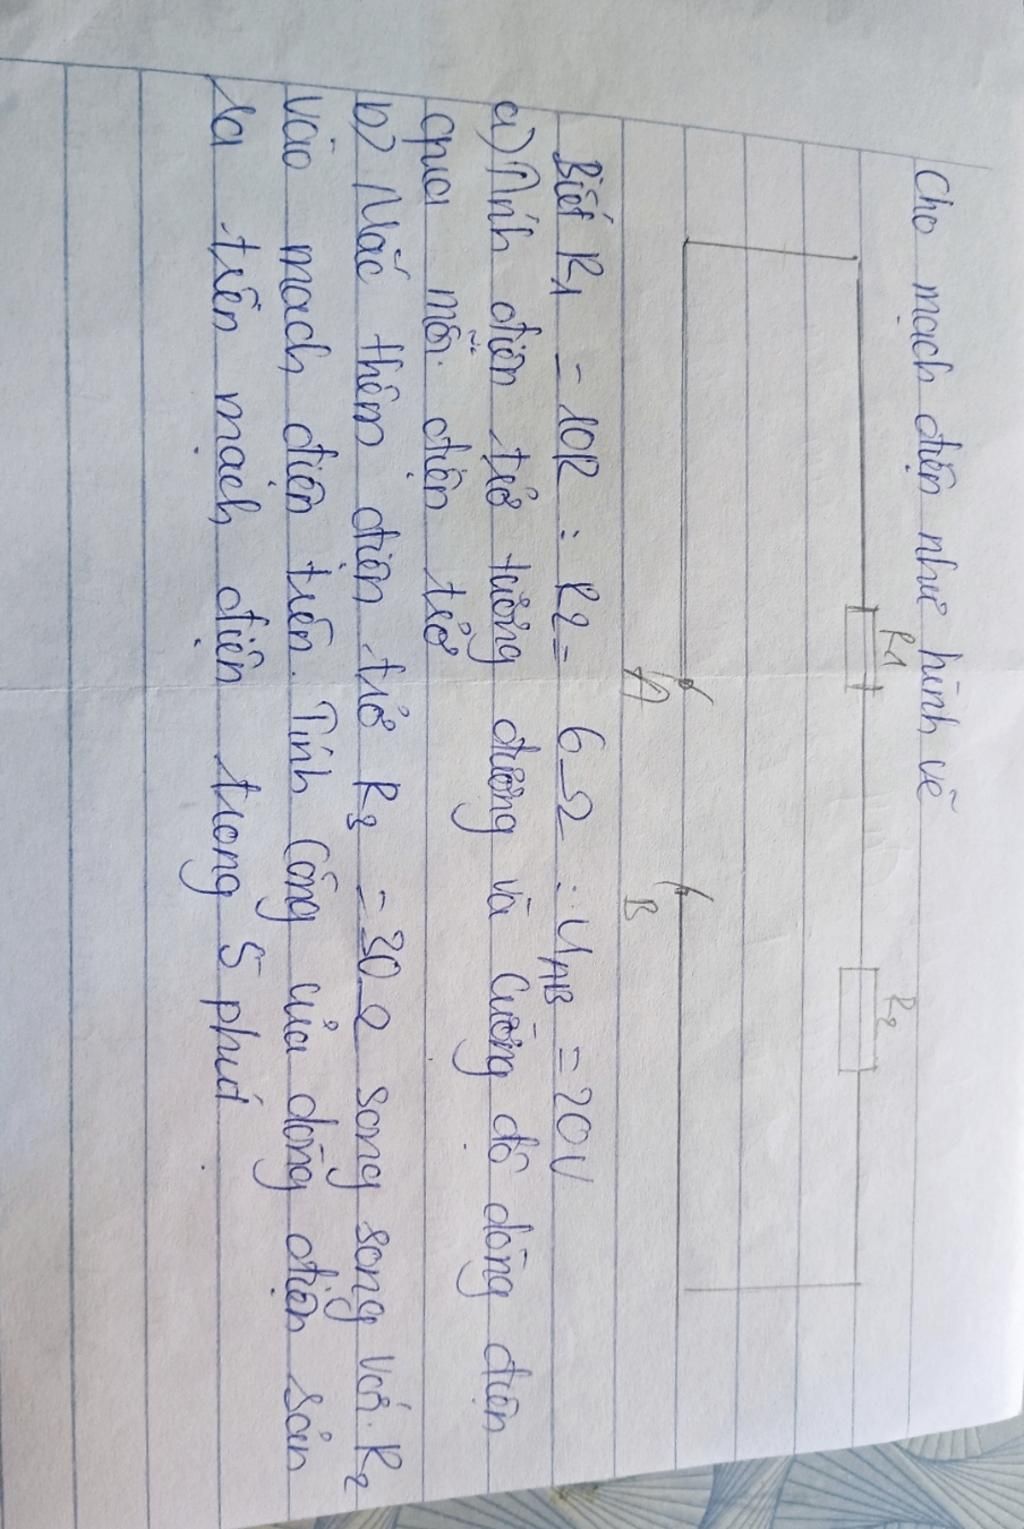 Cho mạch điện như hình vẽ
R1 R2
A B
Biết R1 = 10R : R2 = 6Ω : UAB = 20V
a) Tính điện trở tương đương và cường độ dòng điện
qua mỗi điện trở
b) Mắc thêm điện trở R3 = 30Ω song song với R2
vào mạch điện trên. Tính công của dòng điện sản
ra trên mạch điện trong 5 phút